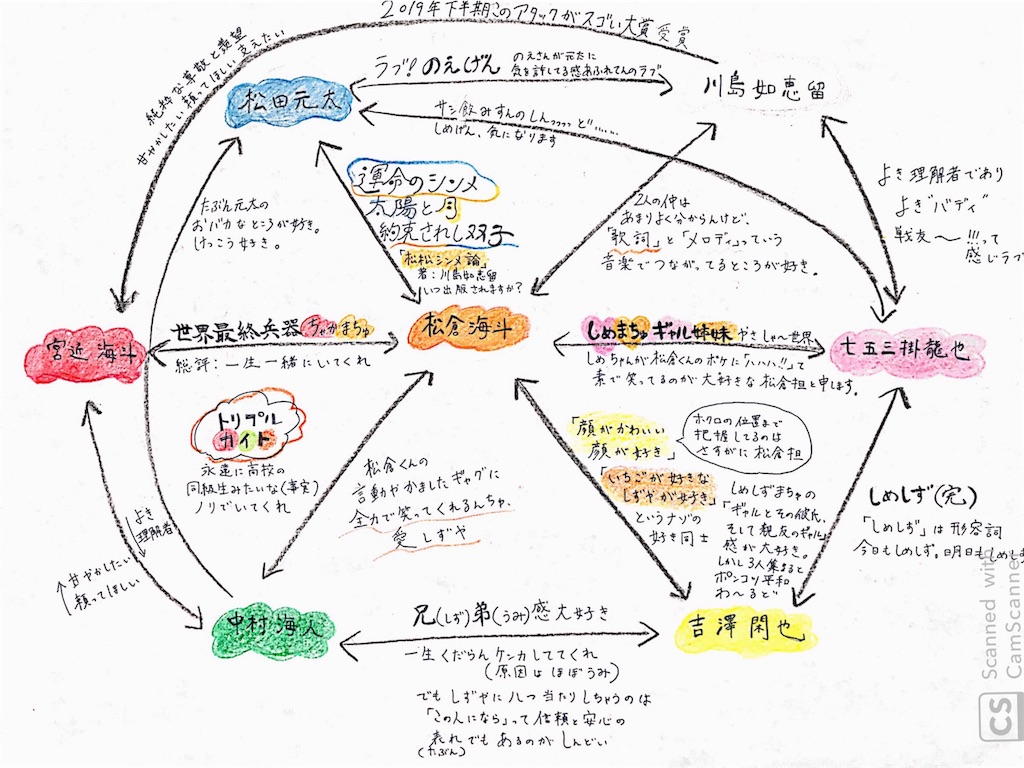 2019年下半期このアタックがスゴい大賞受賞
純粋な尊敬と羨望
甘やかしたい頼ってほしい支えたい
松田元太
ラブ!のえげん
のえさんが元太に
気を許してる感あふれてんのラブ
川島如恵留
サシ飲みすんのしんどッッッッ……
しめげん、気になります
たぶん元太の
おバカなところが好き。
けっこう好き。
運命のシンメ
太陽と月
約束されし双子
「松松シンメ論」
著:川島如恵留
いつ出版されますか?
2人の仲は
あまりよく分からんけど、
「歌詞」と「メロディ」っていう
音楽でつながってるところが好き。
よき理解者であり
よき"バディ"
戦友〜!!!って
感じラブ
宮近海斗
世界最終兵器ちゃかまちゅ
総評:一生一緒にいてくれ
松倉海斗
しめまちゅギャル姉妹やさしゅ〜世界
しめちゃんが松倉くんのボケに「ハハハ!!」って
素で笑ってるのが大好きな松倉担と申します。
七五三掛龍也
トリプル
カイト
永遠に高校の
同級生みたいな(事実)
ノリでいてくれ
松倉くんの
言動やかましたギャグに
全力で笑ってくれるんちゃ、
愛しずや
「顔がかわいい
顔が好き」
ホクロの位置まで
把握してるのは
さすがに松倉担
「いちごが好きな
しずやが好き」
というナゾの
好き同士
しめしずまちゅの
「ギャルとその彼氏、
そして親友のギャル」
感が大好き。
しかし3人集まると
ポンコツ平和
わ〜るど
しめしず(完)
「しめしず」は形容詞
今日もしめしず。明日もしめしず
↓よき
理解者
↑甘やかしたい
頼ってほしい
中村海人
兄(しず)弟(うみ)感大好き
吉澤閑也
一生くだらんケンカしててくれ
(原因はほぼうみ)
でもしずやに八つ当たりしちゃうのは
「この人になら」って信頼と安心の
表れでもあるのがしんどい
(たぶん)
Scanned with
CamScanner
CS